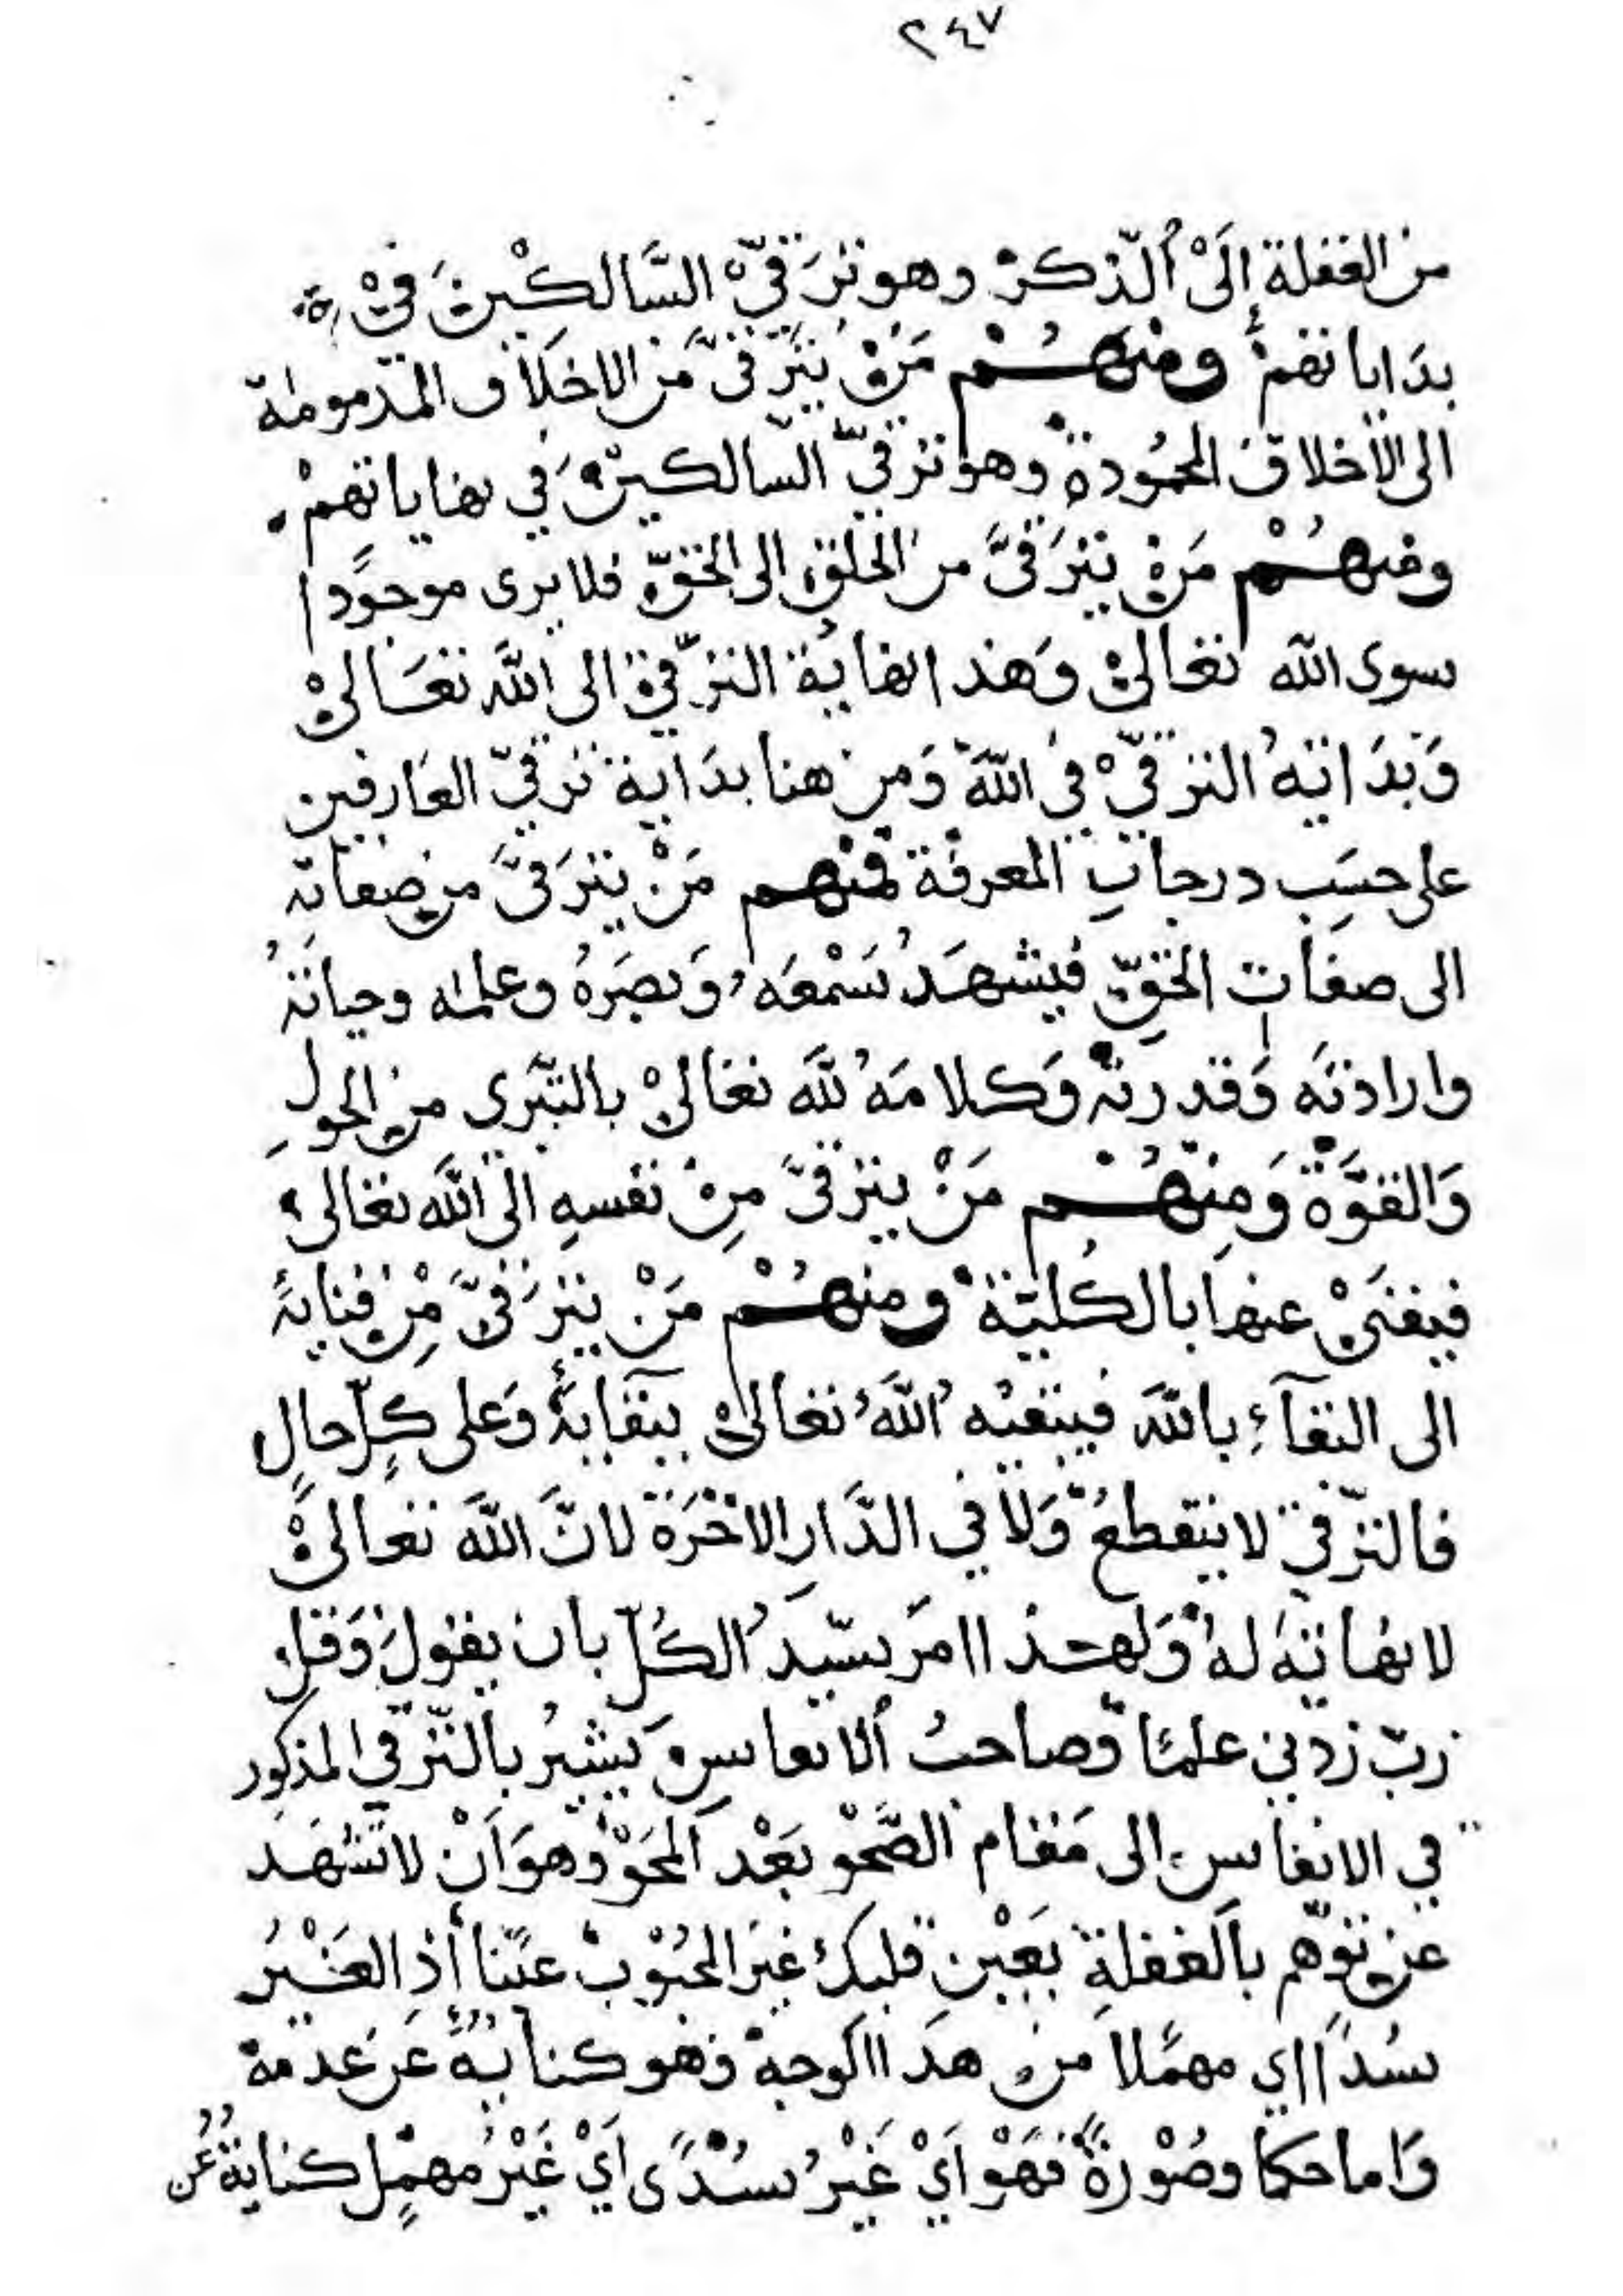 ٢٤٧
من الغفلة إلى الذكر وهو ترقي السالكين في
بداياتهم ومنهم من يترقى من الاخلاق المذمومة
الى الأخلاق المحمودة وهو ترقي السالكين في نهاياتهم
ومنهم من يترقى من الخلق الى الحق فلا يرى موجودا
سوى الله تعالى وهذا نهاية الترقي الى الله تعالى
وبدايته الترقي في الله ومن هنا بداية ترقي العارفين
على حسب درجات المعرفة فمنهم من يترقى من صفاته
الى صفات الحق فيشهد سمعه وبصره وعلمه وحياته
وارادته وقدرته وكلامه لله تعالى بالتبري من الحول
والقوة ومنهم من يترقى من نفسه الى الله تعالى
فيفنى عنها بالكلية ومنهم من يترقى من فنايه
الى البقآء بالله فيبقيه الله تعالى ببقايه وعلى كل حال
فالترقي لا ينقطع ولا في الدار الاخرة لان الله تعالى
لا نهاية له ولهذا امر سيد الكل بان يقول وقل
رب زدني علما وصاحب ألانفاس يشير بالترقي المذكور
في الانفاس الى مقام الصحو بعد المحو وهو ان لا تشهد
عن توهم بالغفلة بعين قلبك غير المحبوب عينا أذ الغير
سدا اي مهملا من هذا الوجه وهو كناية عن عدمه
واما حكما وصورة فهو اي غير سدى اي غير مهمل كناية عن